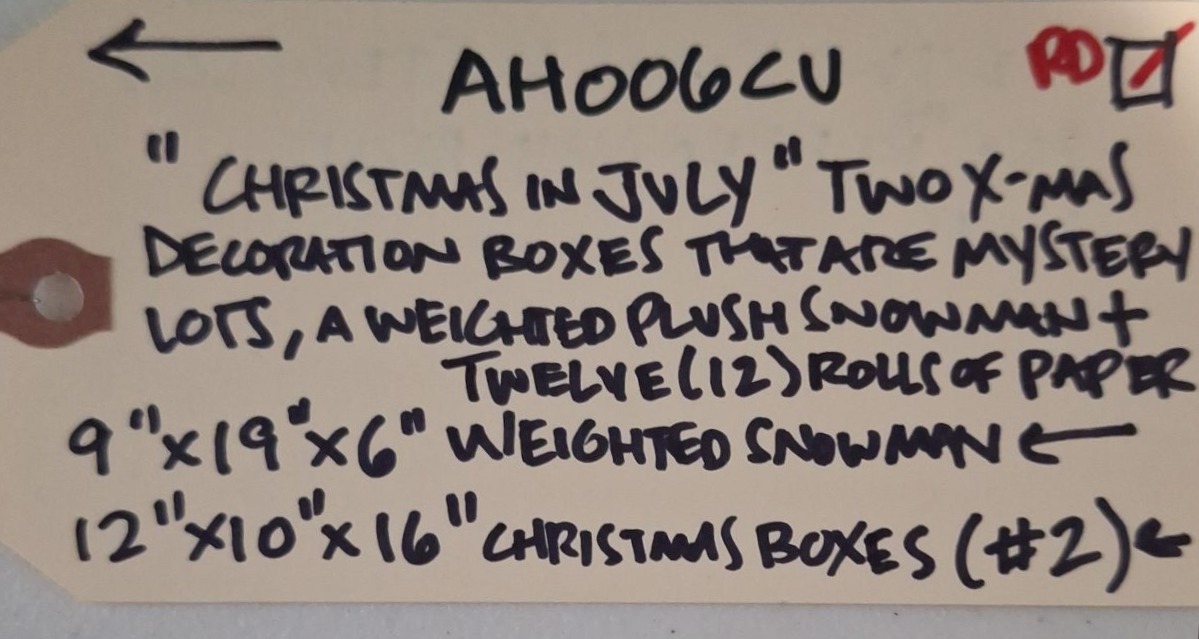 AH006CU RD
"CHRISTMAS IN JULY" TWO X-MAS
DECORATION BOXES THAT ARE MYSTERY
LOTS, A WEIGHTED PLUSH SNOWMAN +
TWELVE (12) ROLLS OF PAPER
9"x19"x6" WEIGHTED SNOWMAN ←
12"x10"x16" CHRISTMAS BOXES (#2) ←